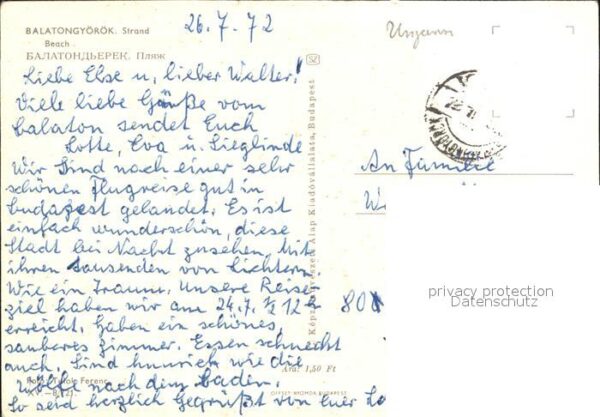 26.7.72
Ungarn
BALATONGYÖRÖK. Strand
Beach
БАЛАТОНДЬЕРЕК. Пляж
Liebe Else u. lieber Walter!
Viele liebe Grüße vom
Balaton sendet Euch
Lotte, Eva u. Sieglinde
Wir sind nach einer sehr
schönen Flugreise gut in
Budapest gelandet. Es ist
einfach wunderschön, diese
Stadt bei Nacht zusehen. Mit
ihren tausenden von Lichtern.
Wie ein Traum. Unsere Reise-
ziel haben wir am 24.7. ½ 12 h
erreicht. Haben ein schönes,
sauberes Zimmer. Essen schmeckt
auch. Sind hungrich wie die
Wölfe nach dem Baden.
So seid herzlich Gegrüßt von Euer Lo
Ferenc
Képzőművészeti Alap Kiadóvállalata, Budapest
Ára: 1,50 Ft
OFFSET-NYOMDA BUDAPEST
An Familie
80
privacy protection
Datenschutz